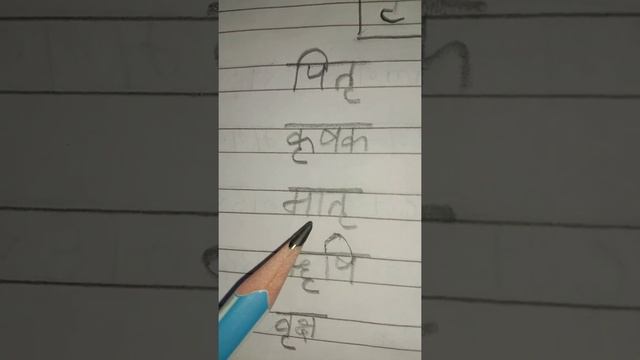 पितृ
कृषक
मातृ
वृक्ष